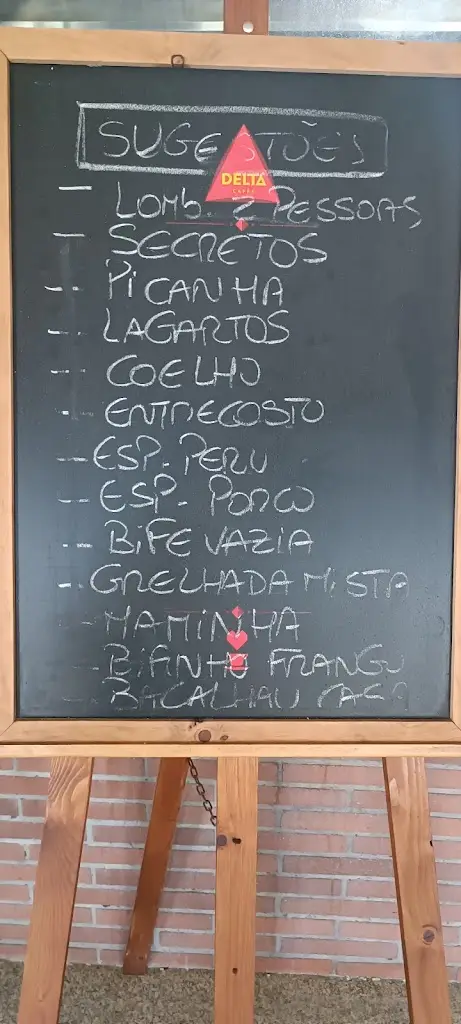 SUGESTÕES
DELTA
CAFÉS
- LOMB. 2 PESSOAS
- SECRETOS
- PICANHA
- LAGARTOS
- COELHO
- ENTRECOSTO
- ESP. PERU
- ESP. PORCO
- BIFE VAZIA
- GRELHADA MISTA
- MAMINHA
- BIFINHO FRANGO
- BACALHAU CASA